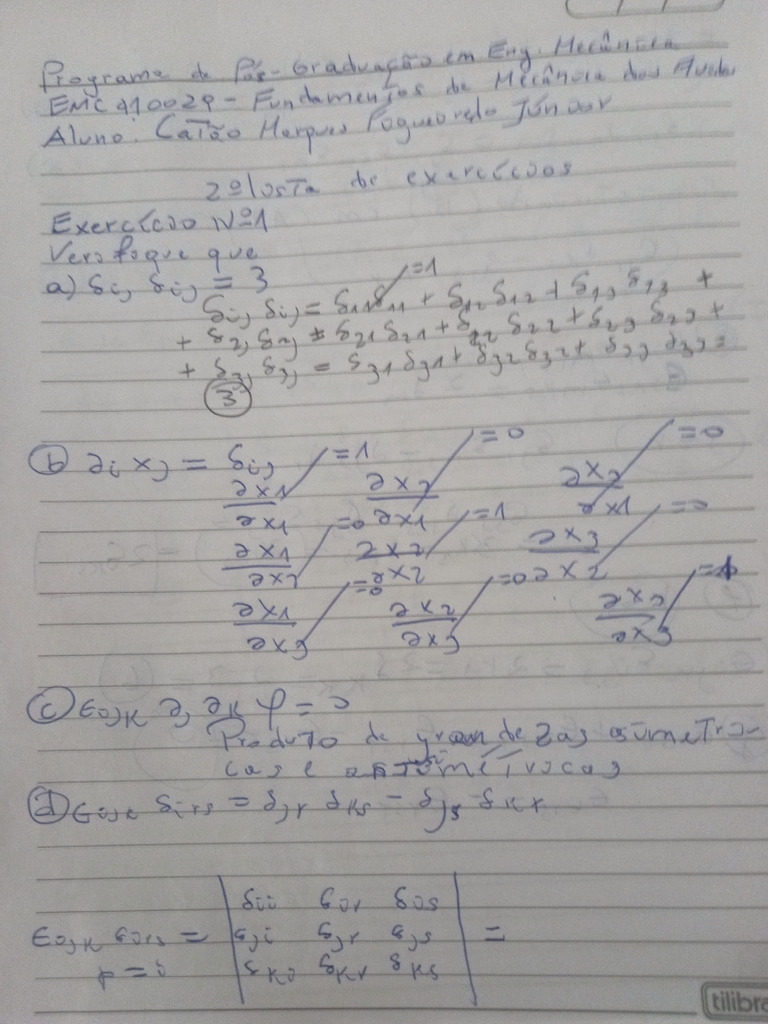 Programa de Pós-Graduação em Eng. Mecânica
EMC 410029 - Fundamentos de Mecânica dos Fluidos
Aluno: Catão Marques Figueiredo Júnior
2ª lista de exercícios
Exercício Nº1
Verifique que
a) δij δij = 3
=1
δij δij = δ11δ11 + δ12 δ12 + δ13 δ13 +
+ δ2j δ2j = δ21 δ21 + δ22 δ22 + δ23 δ23 +
+ δ3j δ3j = δ31 δ31 + δ32 δ32 + δ33 δ33 =
3
b) ∂i xj = δij
∂x1/∂x1 =1 ∂x2/∂x1 =0 ∂x3/∂x1 =0
∂x1/∂x2 =0 ∂x2/∂x2 =1 ∂x3/∂x2 =0
∂x1/∂x3 =0 ∂x2/∂x3 =0 ∂x3/∂x3 =1
c) ϵijk ∂j ∂k φ = 0
Produto de grandezas simétri-
cas e antissimétricas
d) ϵijk δirs = δjr δks - δjs δkr
δii δir δis
ϵijk ϵirs = δji δjr δjs =
p = i δki δkr δks
tilibra